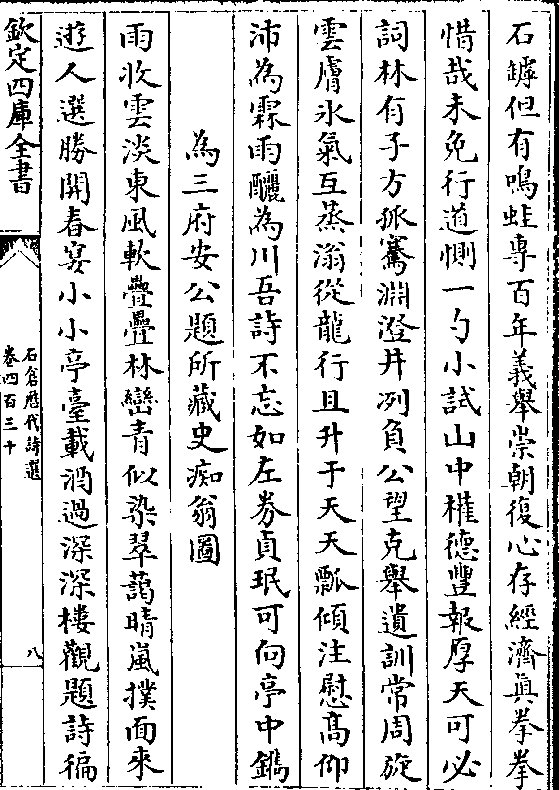 石罅但有鳴蛙專百年義舉崇朝復心存經濟真拳拳
惜哉未免行道惻一勺小試山中權德豐報厚天可必
詞林有子方孤騫淵澄井冽負公望克舉遺訓常周旋
雲膚氷氣互蒸滃從龍行且升于天天瓢傾注慰高仰
沛為霖雨釃為川吾詩不忘如左券貞珉可向亭中鐫
為三府安公題所藏史痴翁圖
雨收雲淡東風軟疊疊林巒青似染翠藹晴嵐撲面來
遊人選勝開春宴小小亭臺載酒過深深樓觀題詩徧
欽定四庫全書
石倉歷代詩選
卷四百三十
八